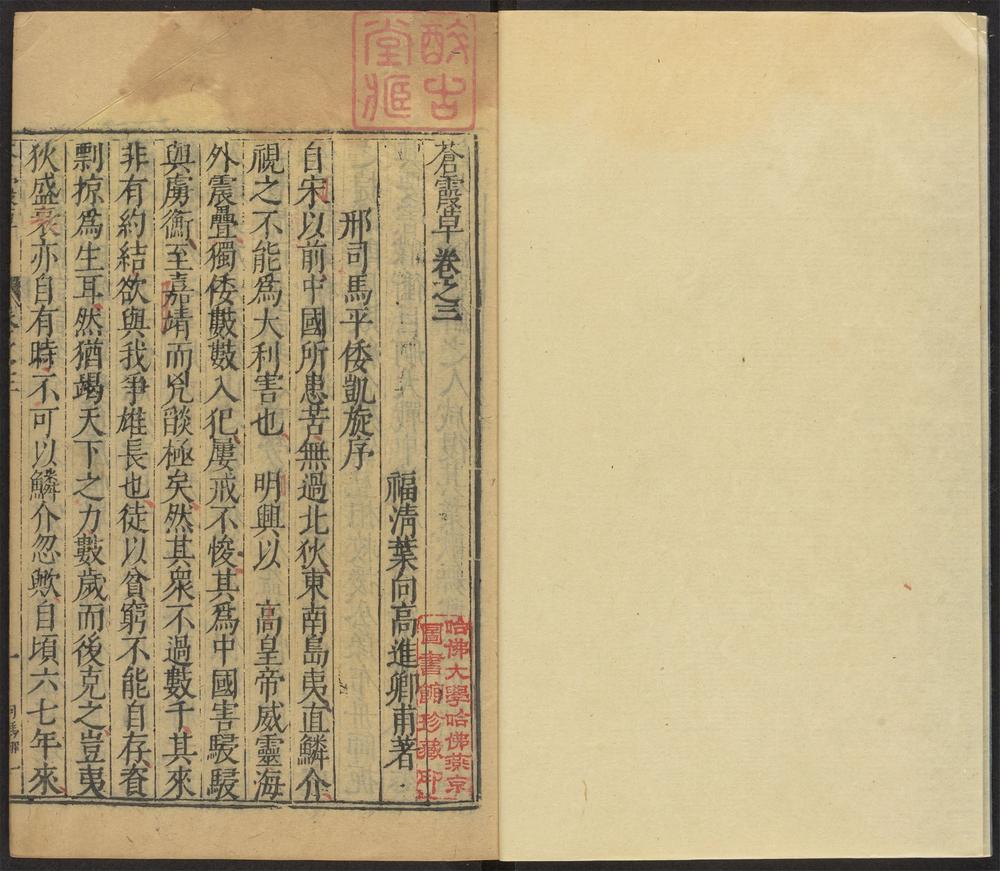 蒼霞草卷之三
福清葉向高進卿甫著
邢司馬平倭凱旋序
自宋以前中國所患苦無過北狄東南島夷直鱗介
視之不能爲大利害也　明興以　高皇帝威靈海
外震疊獨倭數數入犯屢戒不悛其爲中國害駸駸
與虜衡至嘉靖而兇燄極矣然其衆不過數千其來
非有約結欲與我爭雄長也徒以貧窮不能自存者
剽掠爲生耳然猶竭天下之力數歲而後克之豈夷
狄盛衰亦自有時不可以鱗介忽歟自頃六七年來
一
醉古
堂
哈佛大學哈佛燕京
圖書館珍藏印